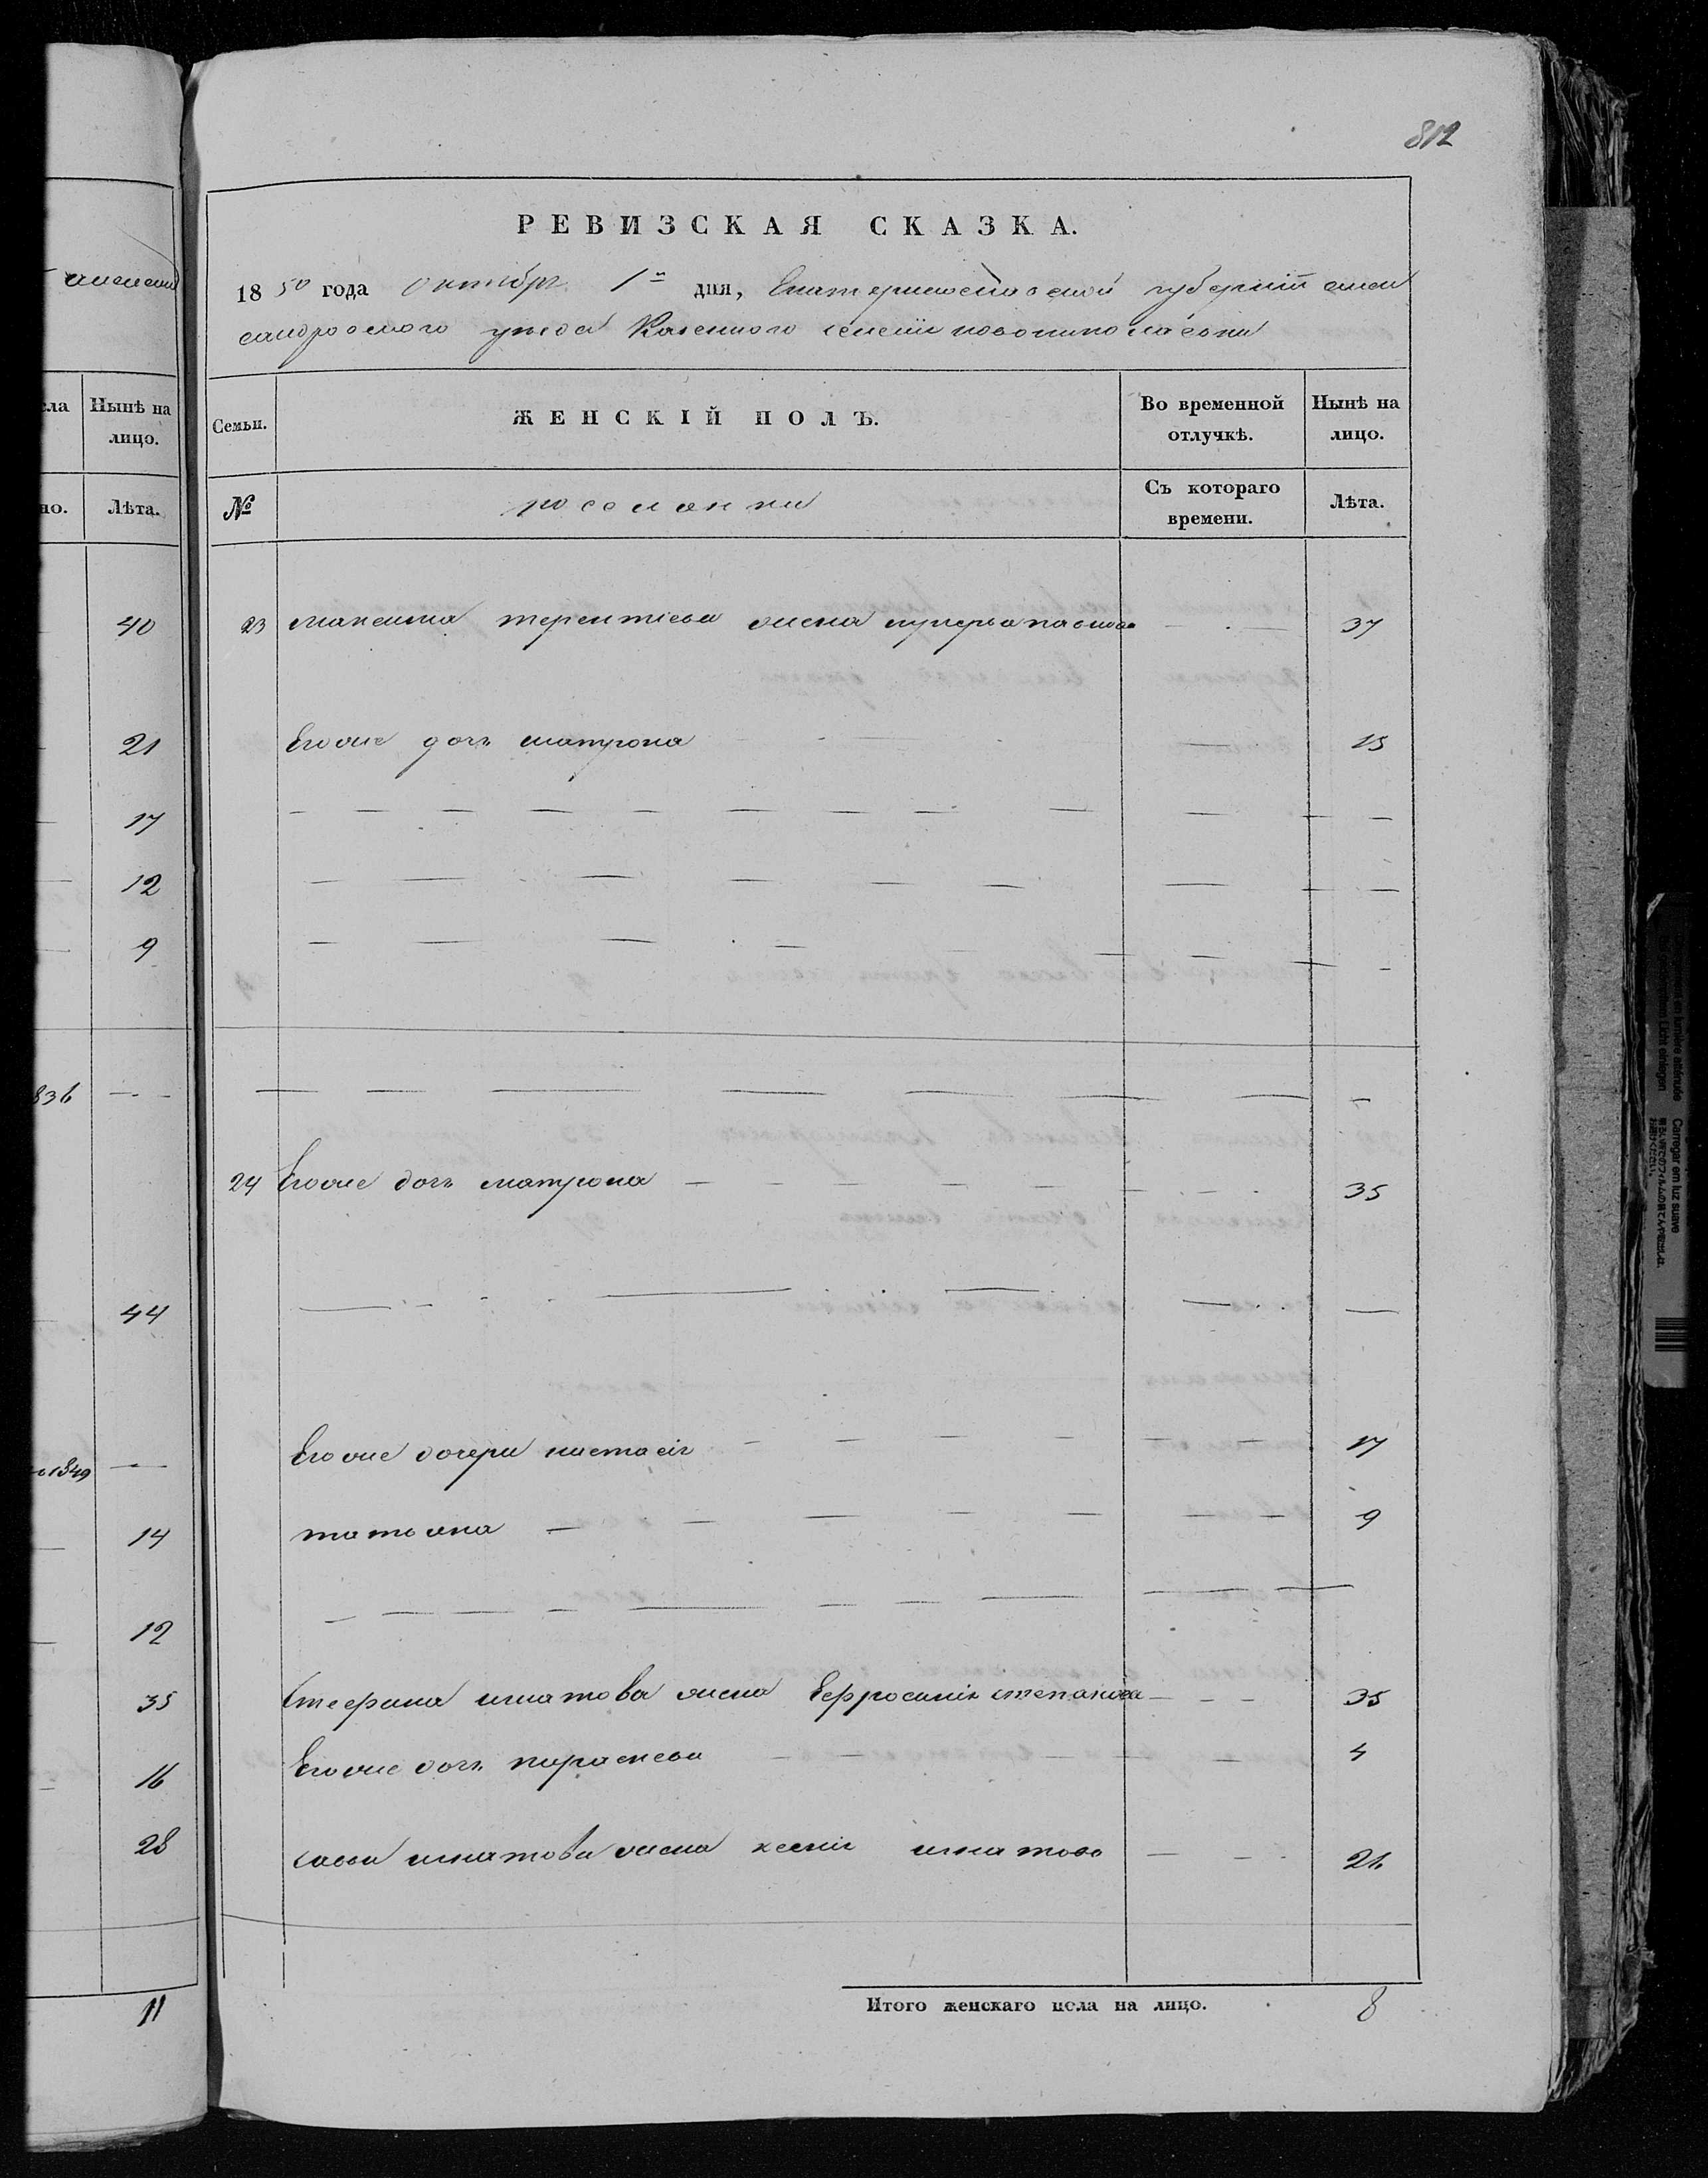 812
РЕВИЗСКАЯ СКАЗКА.
1850 года октября 1го дня, Екатеринославской губернии алек
сандровского уезда Казенного селения
ЖЕНСКІЙ ПОЛЪ.
Семьи.
Во временной отлучкѣ.
Нынѣ на лицо.
№
Съ котораго времени.
Лѣта.
23 максима терентіева жена 37
Егоже дочь матрона 15
24 Егоже дочь матрона 35
Егоже дочери настасія 17
татьяна 9
Стефана игнатова жена Ефросинія степанова 35
Егоже дочь парасковья 4
савы игнатова жена ксенія игнатова 26
Итого женскаго пола на лицо. 8
Нынѣ на
лицо.
Лѣта.
40
21
17
12
9
836
44
1849
14
12
35
16
28
11